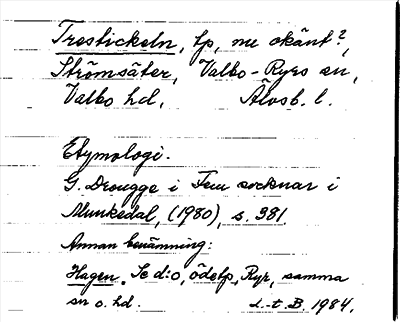 Trestickeln, tp, nu okänt?,
Strömsäter, Valbo-Ryrs sn,
Valbo hd, Älvsb. l.
Etymologi.
G. Drougge i Fem socknar i
Munkedal, (1980), s. 381
Annan benämning:
Hagen. Se d:o, ödetp, Ryr, samma
sn o. hd. L.-t. B. 1984.